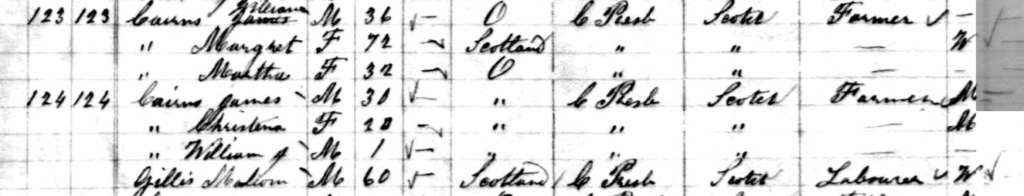 123 123 Cairns William James M 36 — O C Presb Scotch Farmer —
" Margret F 72 — Scotland " " — W
" Martha F 32 — O " " —
124 124 Cairns James M 30 — " C Presb Scotch Farmer M
" Christena F 20 — " " " — M
" William J M 1 — " " " —
Gillis Malcom M 60 — Scotland C Presb Scotch Labourer W